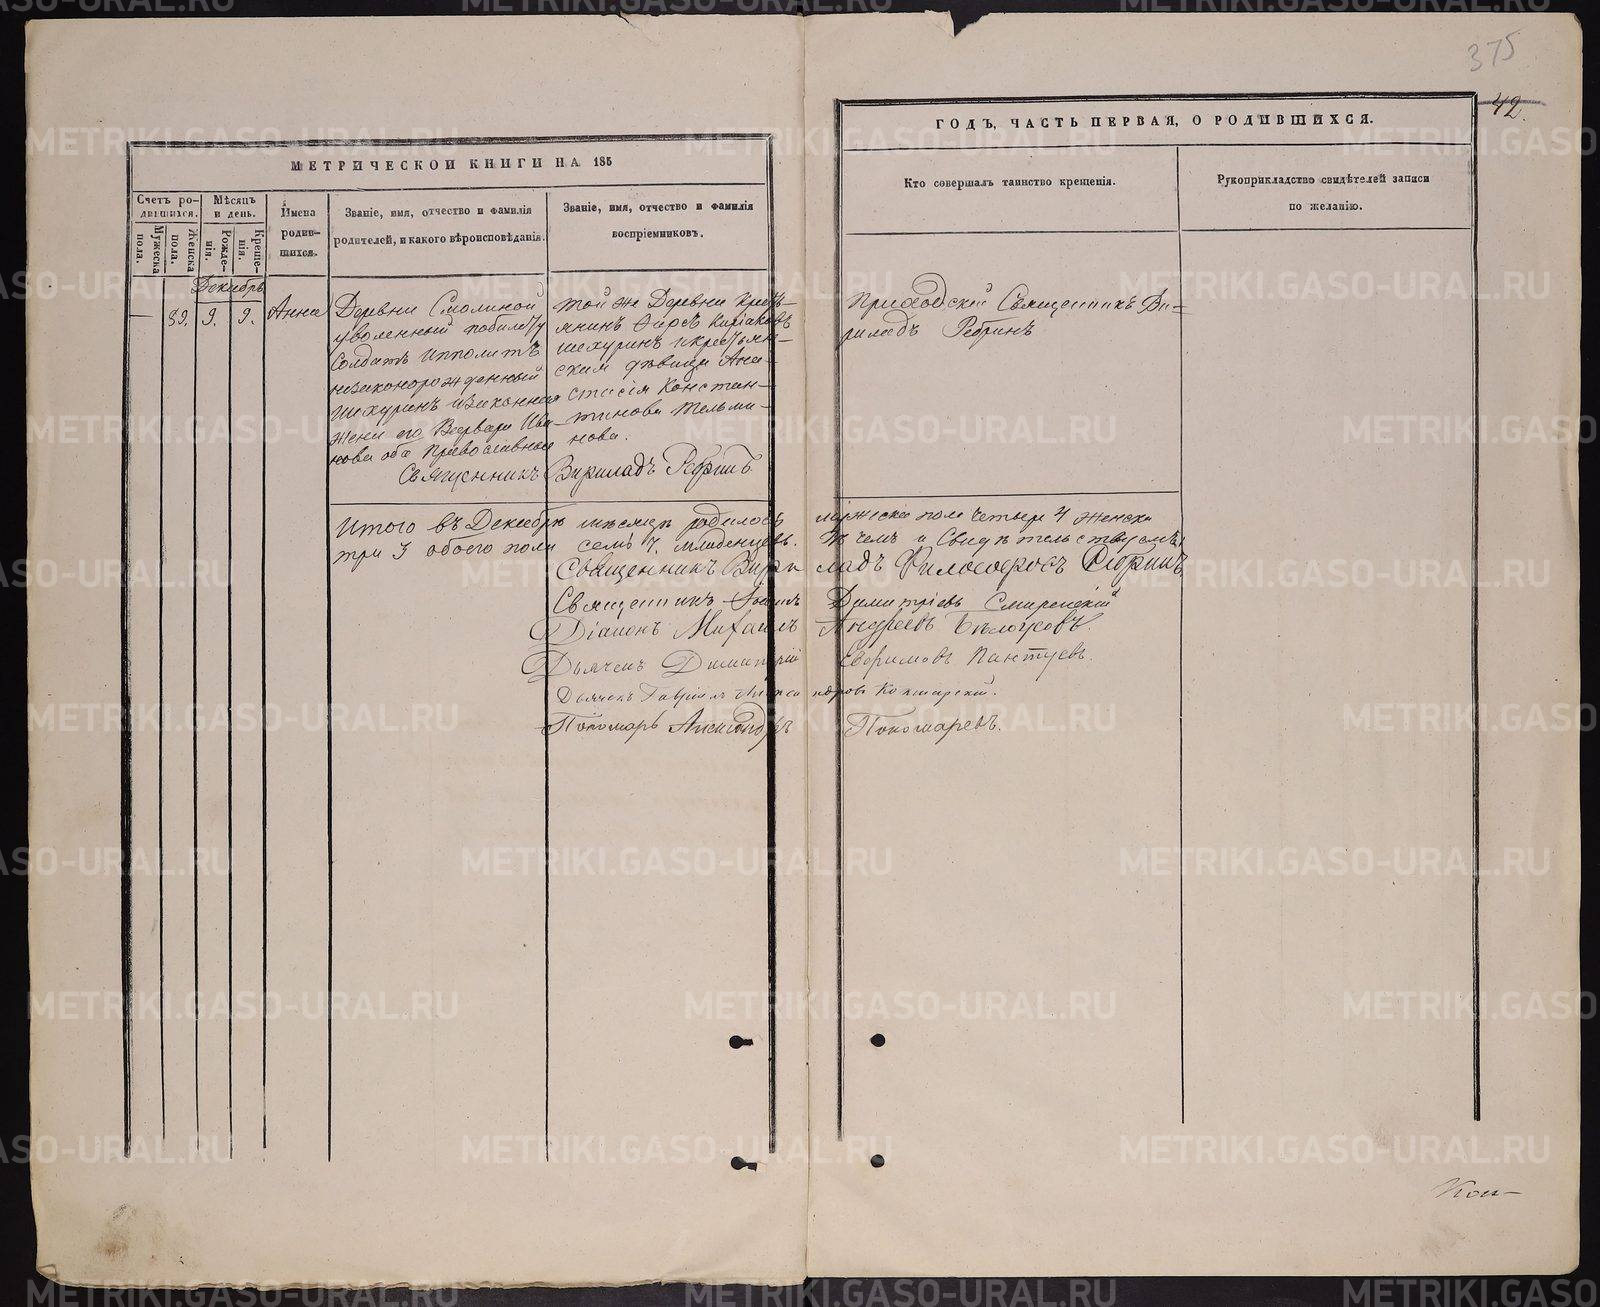 375
42.
МЕТРИЧЕСКОЙ КНИГИ НА 185
ГОДЪ, ЧАСТЬ ПЕРВАЯ, О РОДИВШИХСЯ.
Счетъ ро-
дившихся.
Мужеска
пола.
Женска
пола.
Мѣсяцъ
и день.
Рожде-
нія.
Креще-
нія.
Имена
родив-
шихся.
Званіе, имя, отчество и фамилія
родителей, и какого вѣроисповѣданія.
Званіе, имя, отчество и фамилія
воспріемниковъ.
Кто совершалъ таинство крещенія.
Рукоприкладство свидѣтелей записи
по желанію.
Декабрь
— 89. 9. 9. Анна
Деревни Смолиной
уволенный побилету
Солдатъ Ипполитъ
незаконорожденный
Шехуринъ изаконная
жена его Варвара Ива-
нова оба Православные
той же Деревни Кресть-
янинъ Фирсъ Киріаковъ
Шехуринъ икрестьян-
ская дѣвица Ана-
стасія Констан-
тинова Тельми-
нова.
Священникъ Вириладъ Ребринъ
Приходскій Священникъ Ви-
риладъ Ребринъ
Итого въ Декабрѣ мѣсяцѣ родилось мужеска пола четыре 4 женска
три 3 обоего пола семь 7. младенцевъ. Въ чемъ и Свидѣтельствуемъ:
Священникъ Вириладъ Философовъ Ребринъ
Священникъ Димитріевъ Смиренскій
Діаконъ Михаилъ Андреевъ Бѣлоусовъ.
Дьячекъ Димитрій Ефимовъ Пантуевъ.
Дьячекъ Гавріилъ Александровъ
Пономарь Александръ Пономаревъ.
Кон-
METRIKI.GASO-URAL.RU